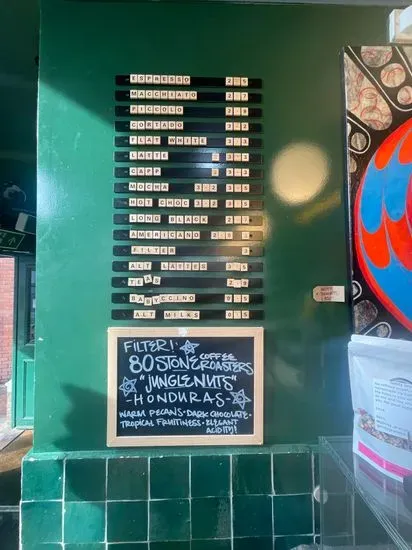 ESPRESSO 2 5
MACCHIATO 2 7
PICCOLO 2 8
CORTADO
FLAT WHITE 3 3
LATTE
CAPP
MOCHA 3 5
HOT CHOC
LONG BLACK
AMERICANO
FILTER 3
ALT LATTES 3 5
TEAS
BABYCCINO
ALT MILKS 0 5
FILTER!
80 STONE COFFEE ROASTERS
"JUNGLE NUTS"
-HONDURAS-
WARM PECANS · DARK CHOCOLATE ·
TROPICAL FRUITINESS · ELEGANT
ACIDITY!